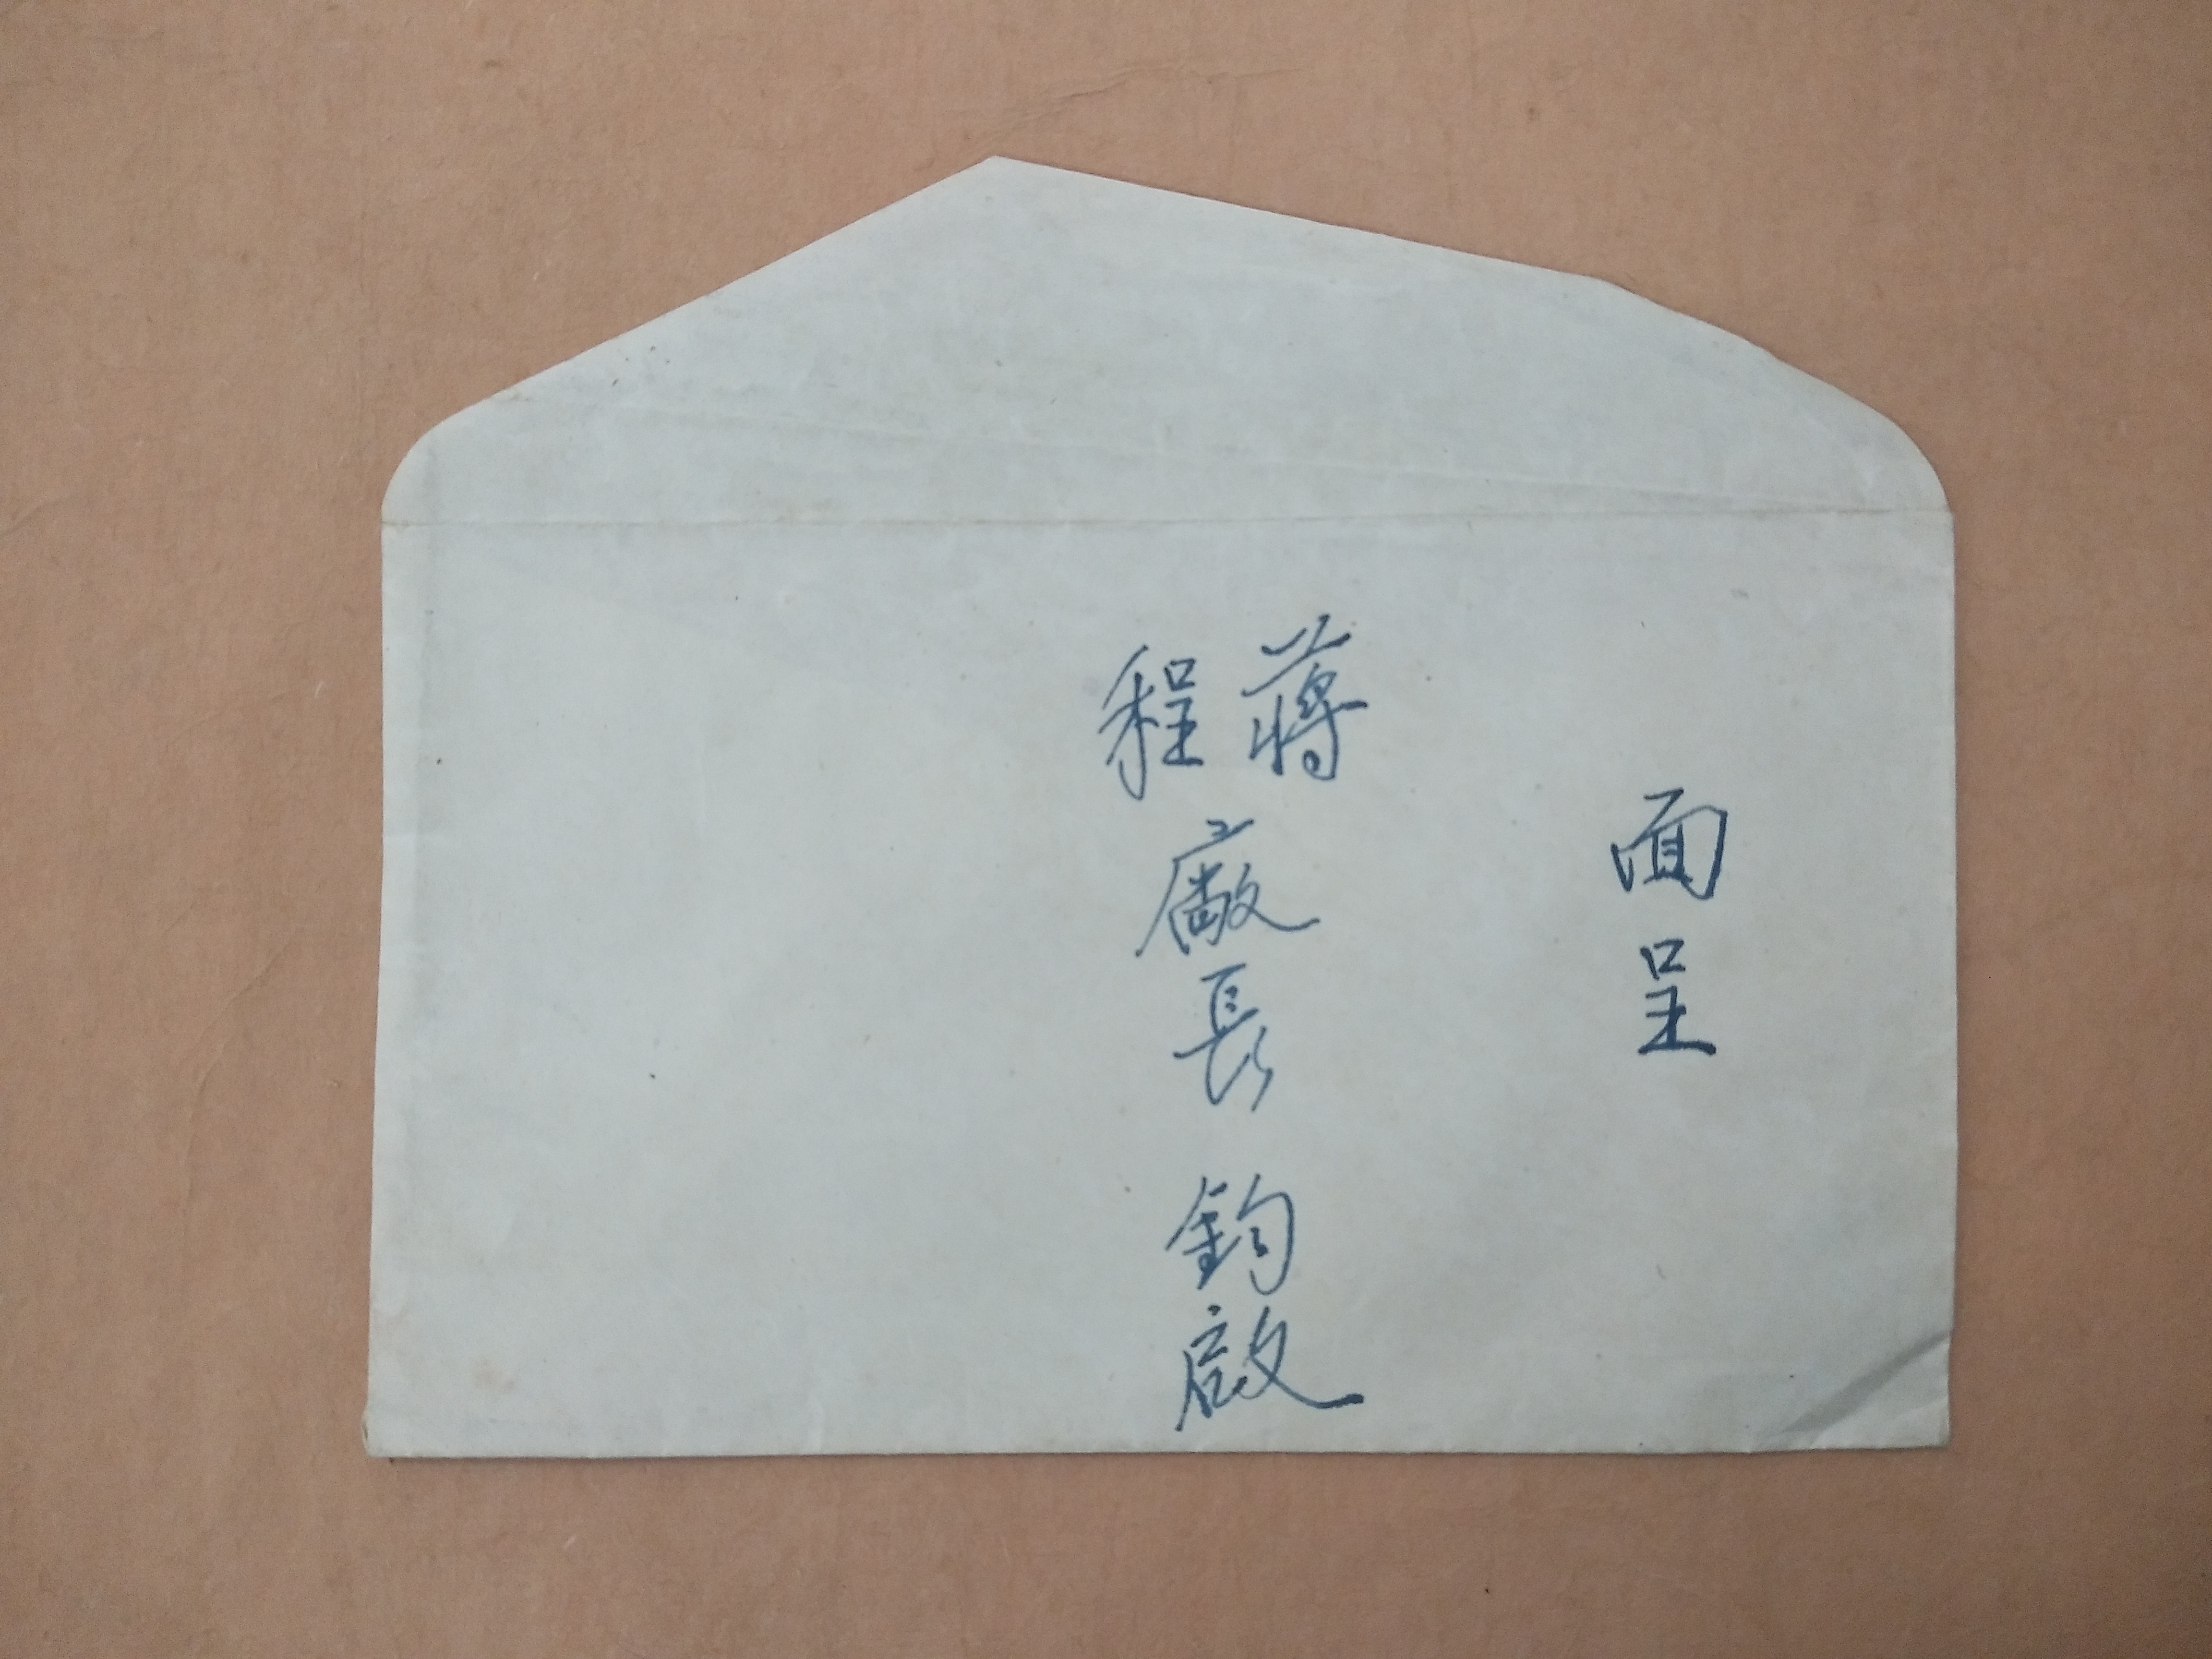 面呈
蔣程廠長 鈞啟